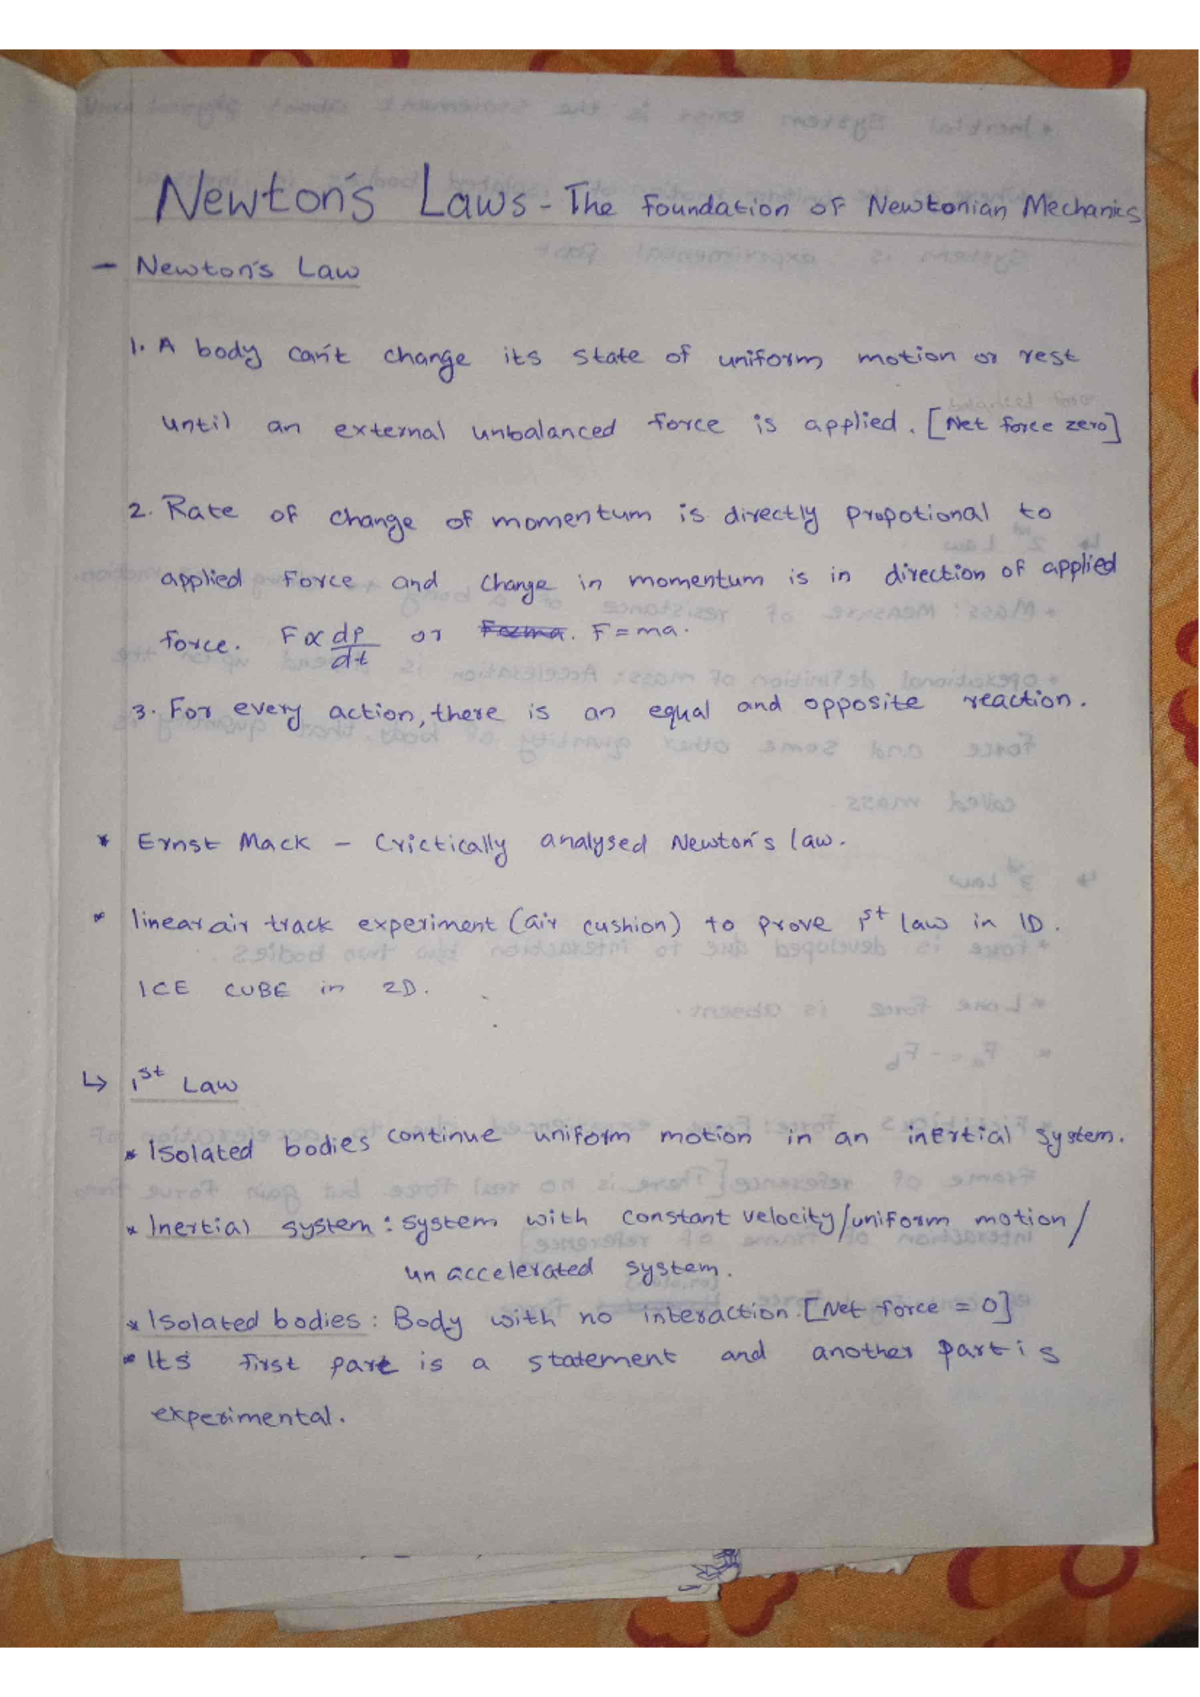 Newton's Laws - The Foundation of Newtonian Mechanics
- Newton's Law
1. A body can't change its state of uniform motion or rest
until an external unbalanced force is applied. [Net force zero]
2. Rate of change of momentum is directly propotional to
applied Force and change in momentum is in direction of applied
force. F ∝ dp/dt or F∝ma. F = ma.
3. For every action, there is an equal and opposite reaction.
* Ernst Mack - Crictically analysed Newton's law.
* linear air track experiment (air cushion) to prove 1st law in 1D.
ICE CUBE in 2D.
↳ 1st Law
* Isolated bodies continue uniform motion in an inertial system.
* Inertial system : system with constant velocity/uniform motion/
unaccelerated system.
* Isolated bodies : Body with no interaction. [Net force = 0]
* Its first part is a statement and another part is
experimental.